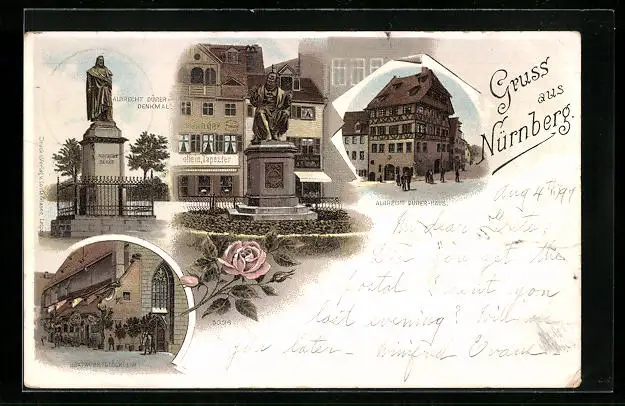 Gruss
aus
Nürnberg.
ALBRECHT DÜRER-
DENKMAL
ALBRECHT DÜRER-HAUS.
BRATWURSTGLÖCKLEIN
5094
Aug 4th 99
My dear
Did you get the
postal I sent you
last evening? Will
you later - Winifred Evans -